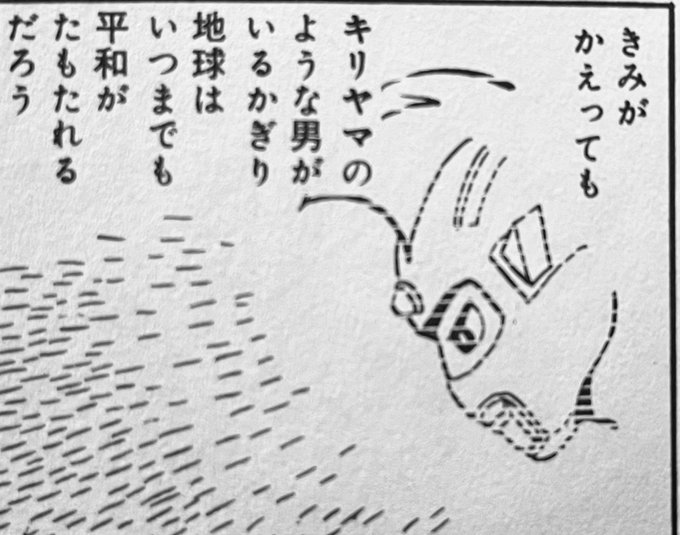 きみが
かえっても
キリヤマの
ような男が
いるかぎり
地球は
いつまでも
平和が
たもたれる
だろう